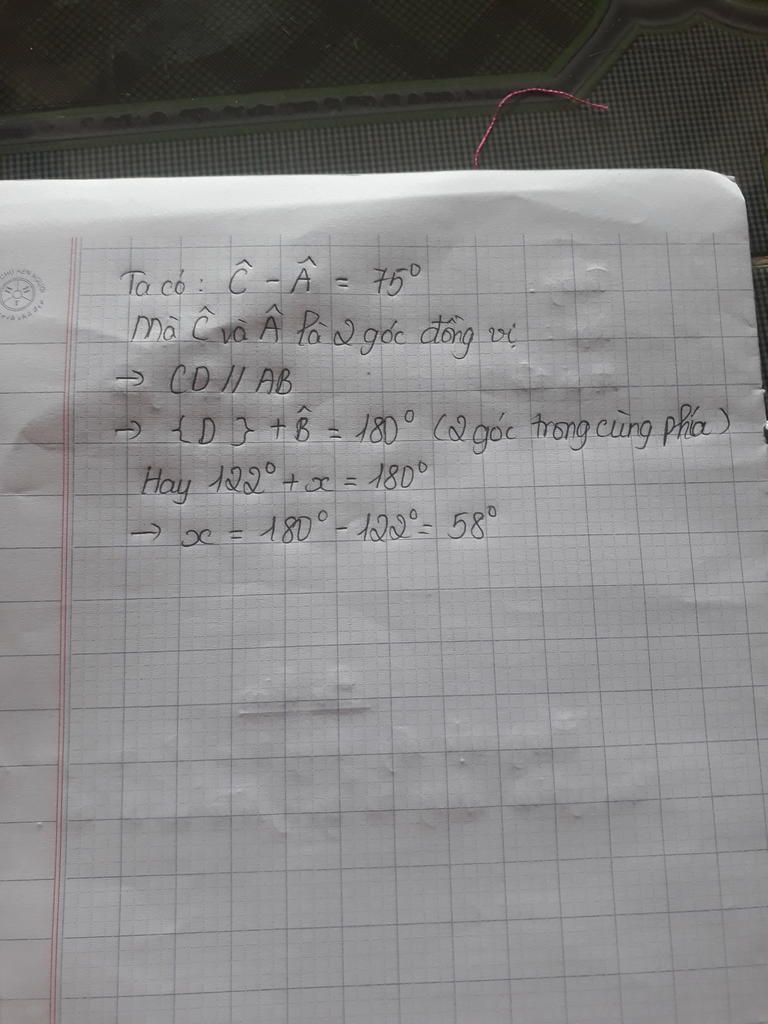 Ta có: Ĉ - Â = 75⁰
Mà Ĉ và Â là 2 góc đồng vị
→ CD // AB
→ {D} + B̂ = 180⁰ (2 góc trong cùng phía)
Hay 122⁰ + x = 180⁰
→ x = 180⁰ - 122⁰ = 58⁰